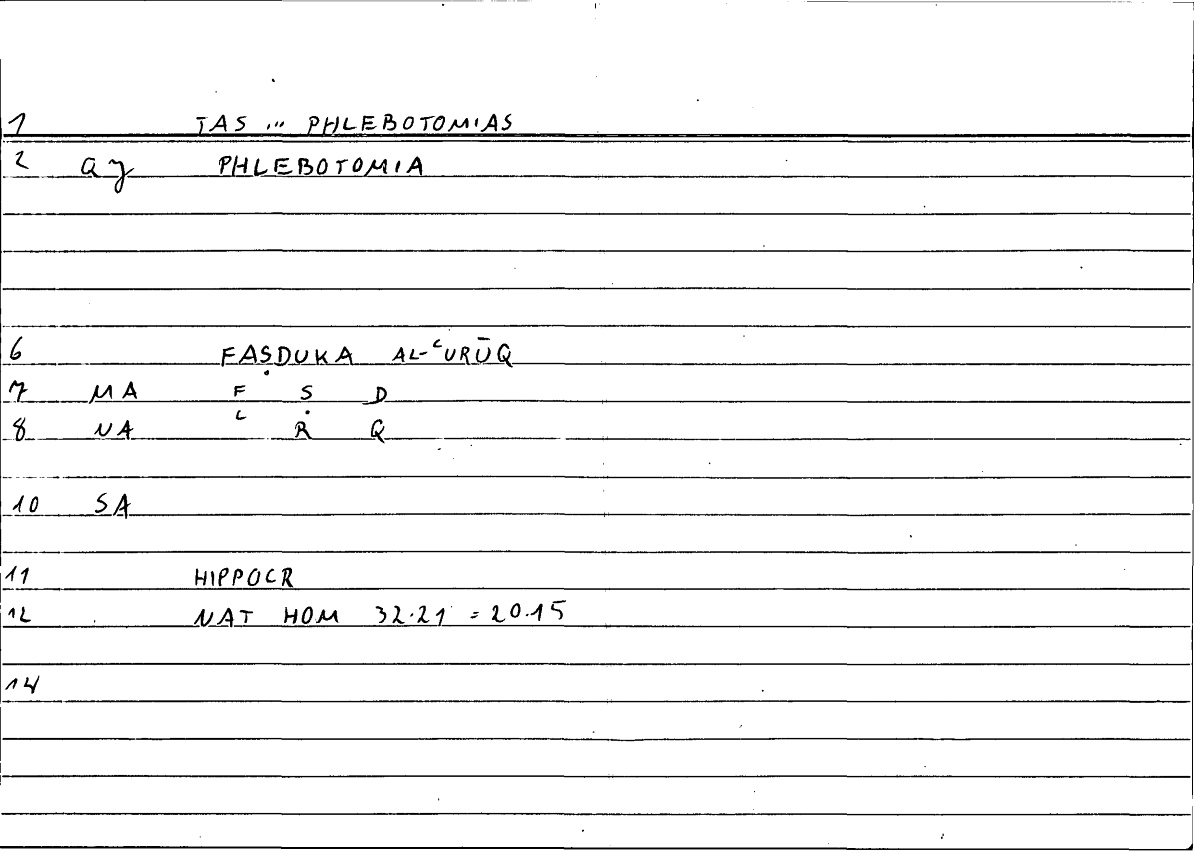 1 TAS ... PHLEBOTOMIAS
2 ay PHLEBOTOMIA
6 FAṢDUKA AL-ʿURŪQ
7 MA F Ṣ D
8 NA ʿ R Q
10 SA
11 HIPPOCR
12 NAT HOM 32.21 = 20.15
14